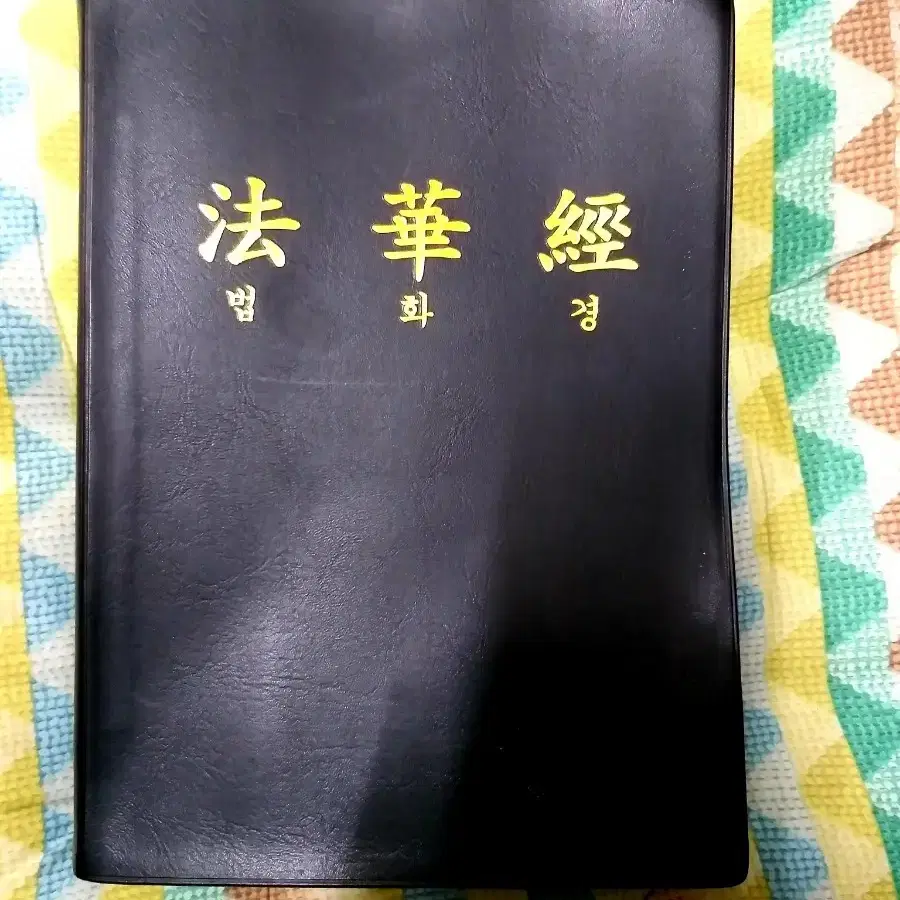 法 華 經
법 화 경